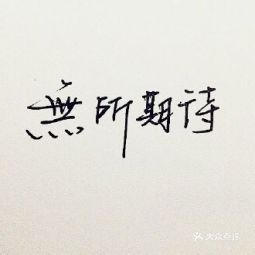 無所期待
大众点评